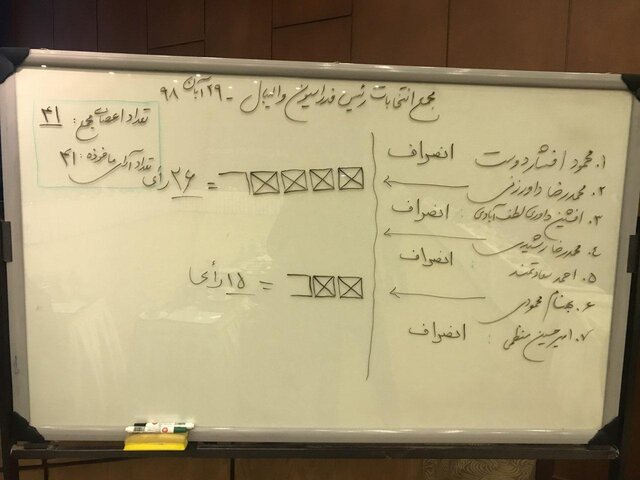 مجمع انتخابات رئیس فدراسیون والیبال - ۲۹ آبان ۹۸
تعداد اعضای مجمع: ۴۱
تعداد آرای مأخوذه: ۴۱
۱. محمود افشاردوست انصراف
۲. محمدرضا داورزنی = ۲۶ رأی
۳. افشین داوری لطف آبادی: انصراف
۴. محمدرضا رشیدی
۵. احمد سعادتمند انصراف
۶. بهنام محمودی = ۱۵ رأی
۷. امیرحسین منظمی: انصراف